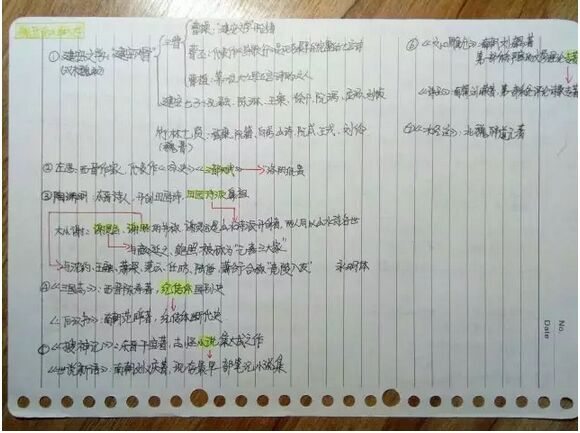 魏晋南北朝
①建安文学：建安风骨
(汉末魏初)
三曹
曹操："建安文学"
曹丕：代表作《燕歌行》是现存最早的完整的七言诗
曹植：第一位大力写五言诗的文人
建安七子：孔融、陈琳、王粲、徐干、阮瑀、应玚、刘桢
竹林七贤：嵇康、阮籍、山涛、阮咸、王戎、刘伶
(魏晋)
②左思：西晋作家，代表作《咏史》《三都赋》→洛阳纸贵
③陶渊明：东晋诗人，开创田园诗，田园诗派鼻祖
大小谢：谢灵运、谢朓
与颜延之、鲍照被称为"元嘉三大家"
与沈约、王融、萧琛、范云、任昉、陆倕、萧衍合称"竟陵八友" 永明体
④《三国志》：西晋陈寿著，纪传体国别史
《后汉书》：南朝范晔著，纪传体断代史
⑤《搜神记》：东晋干宝著，志怪小说集大成之作
《世说新语》：南朝刘义庆著，现存最早一部笔记小说集
⑥《文心雕龙》南朝刘勰著
《诗品》：南朝
《水经注》：北魏郦道元著
No.
Date